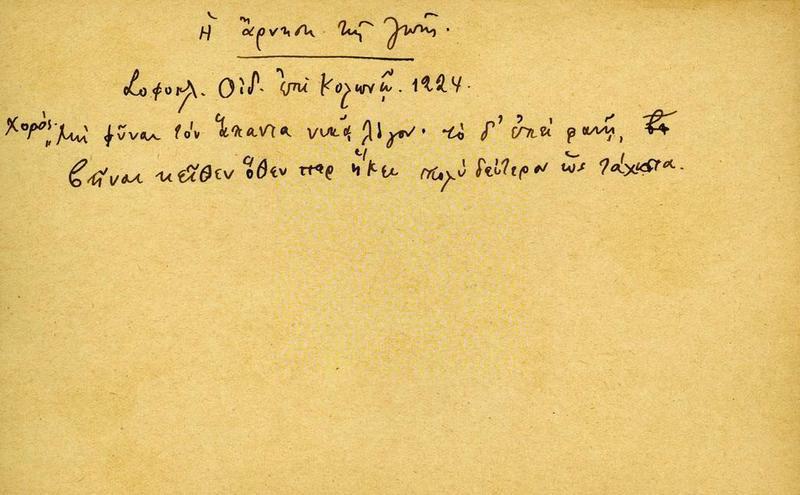 Ἡ ἄρνηση τῆς ζωῆς.
Σοφοκλ. Οἰδ. ἐπὶ Κολωνῷ. 1224.
Χορός· „Μὴ φῦναι τὸν ἅπαντα νικᾷ λόγον· τὸ δ' ἐπεὶ φανῇ,
βῆναι κεῖθεν ὅθεν περ ἥκει πολὺ δεύτερον ὡς τάχιστα.